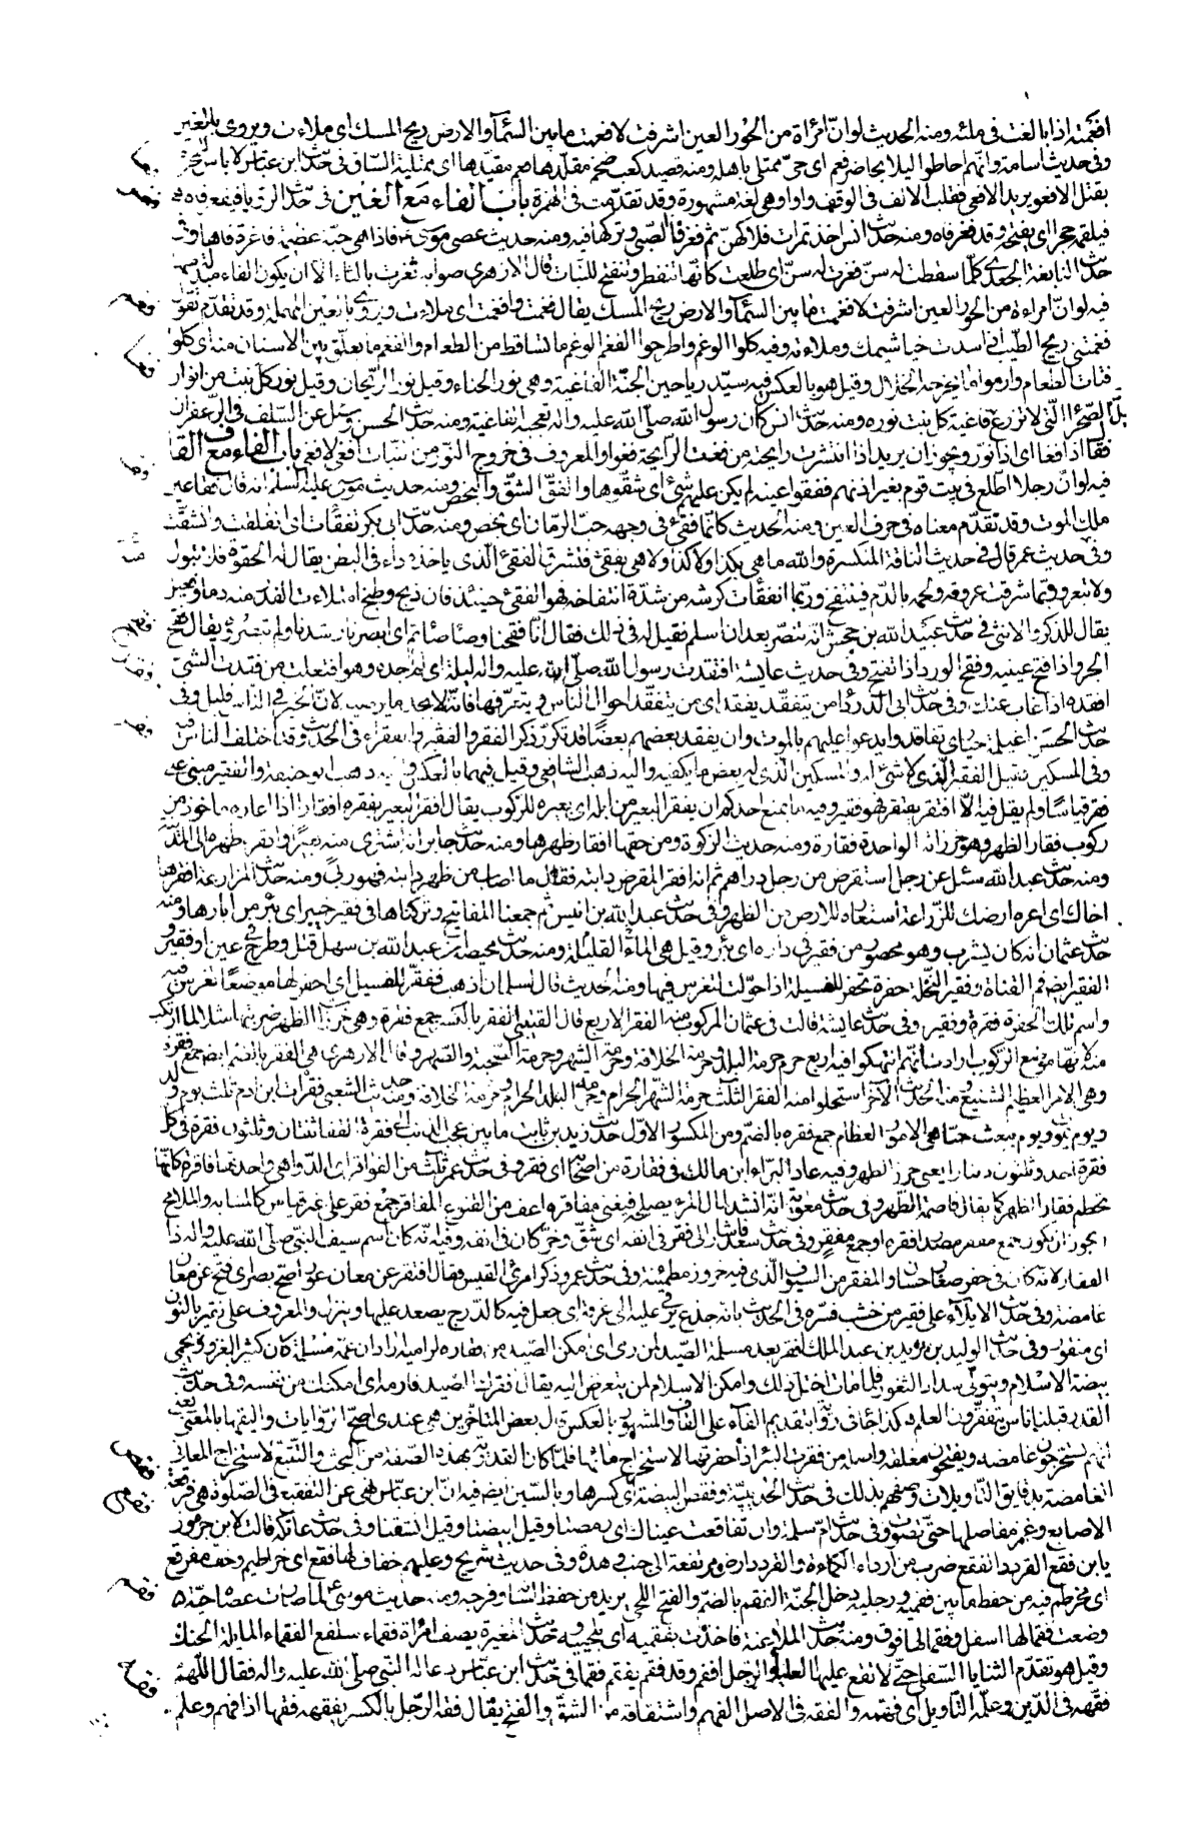 افعمته اذا بالغت فى ملئه ومنه الحديث لوانّ امرأة من الحور العين اشرفت لافعمت ما بين السّمآء والارض ريح المسك اى ملاءت ويروى بالغين
وفى حديث اسامة وانّهم احاطوا ليلا بحاضر فعم اى حىّ ممتلى باهله ومنه قصيد كعب ضخم مقلّدها فعم مقيّدها اى ممتلية السّاق فى حديث ابن عباس لاباس للمحرم
بقتل الافعو يريد الافعى فقلب الالف فى الوقف واوا وهى لغة مشهورة وقد تقدّمت فى الهمزة باب الفاء مع الغين فى حديث الرؤيا فيفغر فاه
فيلقمه حجرا اى يفتحه وقد فغر فاه ومنه حديث انس اخذ تمرات فلاكهنّ ثم فغر فا الصّبى وتركها فيه ومنه حديث عصى موسى فاذا هى حيّة عظيمة فاغرة فاها وفى
حديث النابغة الجعدى كلّما سقطت له سنّ فغرت له سنّ اى طلعت كانّها تنفطر وتنفتح للنّبات قال الازهرى صوابه ثغرت بالثاء الّا ان يكون الفاء مبدلة
فيه لوانّ امراءة من الحور العين اشرفت لافغمت ما بين السّمآء والارض ريح المسك يقال فغمت وافغمت اى ملاءت ويروى بالعين المهملة وقد تقدّم تقول
فغمتنى ريح الطّيب اذا سدت خياشيمك وملاءته وفيه كلوا الوغم واطرحوا الفغم الوغم ما تساقط من الطعام والفغم ما يعلق بين الاسنان منه اى كلوا
فتات الطّعام وارموا ما يخرجه الخلال وقيل هو بالعكس فيه سيّد رياحين الجنّة الفاغية وهى نور الحناء وقيل نور الرّيحان وقيل نور كل نبت من انوار
الصّحرا الّتى لا تزرع وقيل فاغية كل نبت نوره ومنه حديث انس كان رسول الله صلّى الله عليه واله تعجبه الفاغيه ومنه حديث الحسن وسئل عن السّلف فى الزّعفران
فقال اذا فغا اى اذا نور ويجوز ان يريد اذا انتشرت رايحته من فغت الرايحة فغوا والمعروف فى خروج النّور من النبات افغى لا فغى باب الفاء مع القاف
فيه لوانّ رجلا اطّلع فى بيت قوم بغير اذنهم ففقؤا عينه لم يكن عليهم شئ اى شقّوها والفقأ الشّق والبخص ومنه حديث موسى عليه السّلم انه فقأ عين
ملك الموت وقد تقدّم معناه فى حرف العين ومنه الحديث كانّما فقئ فى وجهه حبّ الرّمان اى بخص ومنه حديث ابى بكر تفقأت اى انفلقت وانشقّت
وفى حديث عمر قال فى حديث الناقة المنكسرة والله ما هى بكذا ولا كذا ولا هى بفقئ فتشرق الفقئ الّذى ياخذه داء فى البطن يقال له الحقوة فلا تبول
ولا تبعر وربّما شرقت عروقه ولحمه بالدّم فينتفخ وربّما انفقأت كرشه من شدّة انتفاخه فهو الفقئ حينئذ فان ذبح وطبخ امتلاءت القدر منه دما وفعيل
يقال للذكر والانثى فى حديث عبيد الله بن جحش انّه تنصّر بعد ان اسلم فقيل له فى ذلك فقال انّا فقّحنا وصأصأتم اى ابصرنا رشدنا ولم تبصروه يقال فقّح
الجرو اذا فتح عينيه وفقح الورد اذا تفتح وفى حديث عايشة افتقدت رسول الله صلّى الله عليه واله ليلة اى لم اجده وهو افتعلت من فقدت الشئ
افقده اذا غاب عنك وفى حديث ابى الدّرداء من يتفقّد يفقد اى من يتفقّد احوال النّاس ويتعرّفها فانّه لا يجد ما يرضيه لانّ الخير فى النّاس قليل وفى
حديث الحسن اغيلمة حيارى تفاقدوا يدعوا عليهم بالموت وان يفقد بعضهم بعضا قد تكرّر ذكر الفقر والفقير والفقراء فى الحديث وقد اختلف الناس فيه
وفى المسكين فقيل الفقير الذى لا شئ له والمسكين الذى له بعض ما يكفيه واليه ذهب الشافعى وقيل فيهما بالعكس واليه ذهب ابو حنيفة والفقير مبنى على
فقر قياسا ولم يقل فيه الّا افتقر يفتقر فهو فقير وفيه ما يمنع احدكم ان يفقر البعير من ابله اى يعيره للرّكوب يقال افقر البعير يفقره افقارا اذا اعاره ماخوذ من
ركوب فقار الظهر وهو خرزاته الواحدة فقارة ومنه حديث الزكوة ومن حقها افقار ظهرها ومنه حديث جابر انه اشترى منه بعيرا وافقره ظهره الى المدينة
ومنه حديث عبد الله سئل عن رجل استقرض من رجل دراهم ثم انه افقر المقرض دابته فقال ما اصاب من ظهر دابته فهو ربى ومنه حديث المزارعة افقرها
اخاك اى اعره ارضك للزّراعة استعاره للارض من الظهر وفى حديث عبد الله بن انيس ثم جمعنا المفاتيح وتركناها فى فقير خيبر اى بئر من ابارها ومنه
حديث عثمان انه كان يشرب وهو محصور من فقير فى داره اى بئر وقيل هى القليلة الماء ومنه حديث محيصة ان عبد الله بن سهل قتل وطرح فى عين او فقير و
الفقير ايضم فم القناة وفقير النّخلة حفرة تحفر للفسيلة اذا حوّلت لتغرس فيها ومنه الحديث قال لسلمان اذهب ففقّر للفسيل اى احفر لها موضعا تغرس فيه
واسم تلك الحفرة فقرة وفقير وفى حديث عايشة قالت فى عثمان المركوب منه الفقر الاربع قال القتيبى الفقر بالكسر جمع فقرة وهى خرزات الظهر ضربتها مثلا لما ارتكب
منه لانّها موضع الرّكوب ارادت انّهم انتهكوا فيه اربع حرم حرمة البلد وحرمة الخلافة وحرمة الشهر وحرمة الصّحبة والصّهر وقال الازهرى هى الفقر بالضّم ايضم جمع فقرة
وهى الامر العظيم الشنيع ومنه الحديث الآخر استحلوا منه الفقر الثلث حرمة الشّهر الحرام وحرمة البلد الحرام وحرمة الخلافة ومنه حديث الشعبى فقرات ابن ادم ثلث يوم ولد
ويوم يموت ويوم يبعث حيّا هى الامور العظام جمع فقره بالضّم ومن المكسور الاوّل حديث زيد بن ثابت ما بين عجب الذنب الى فقرة القفا ثنتان وثلثون فقرة فى كل
فقرة احد وثلثون دينارا يعنى خرز الظهر وفيه عاد البرّاء ابن مالك فى فقارة من اصحابه اى فقر وفى حديث عمر ثلث من الفواقر اى الدّواهى واحدتها فاقرة كانّها
تحطم فقار الظهر كما يقال قاصمة الظّهر وفى حديث معوية انّه انشد لمال المرء يصلحه فيغنى مفاقره اعف من القنوع المفاقر جمع فقر على غير قياس كالمشابه والملامح
ويجوز ان يكون جمع مفقر مصدر افقره او جمع مفقر وفى حديث سعد فاشار الى فقر فى انفه اى شقّ وحزّ كان فى انفه وفيه انّه كان اسم سيف النبّى صلّى الله عليه واله ذا
الفقار لانّه كان فى حفر صغار حسان والمفقر من السّيوف الّذى فيه حزوز مطمئنة وفى حديث عمر وذكر امرئ القيس فقال افتقر عن معان عور اصحّ بصر اى فتح عن معان
غامضة وفى حديث الايلآء على فقير من خشب فسّره فى الحديث بانّه جذع يرقى عليه الى غرفة اى جعل فيه كالدّرج يصعد عليها وينزل والمعروف على نقير بالنّون
اى منقور وفى حديث الوليد بن يزيد بن عبد الملك افقر بعد مسلمة الصّيد لمن رمى اى امكن الصّيد من فقاره لراميه اراد ان عمّه مسلمة كان كثير الغزو يحمى
بيضة الاسلام ويتولّى سداد الثّغور فلمّا مات اختل ذلك وامكن الاسلام لمن يتعرض اليه يقال افقرك الصّيد فارمه اى امكنك من نفسه وفى حديث
القدر قبلنا ناس يتفقّرون العلم هكذا جاء فى رواية بتقديم الفآء على القاف والمشهور بالعكس قال بعض المتاخّرين هى عندى اصحّ الرّوايات واليقها بالمعنى يعنى
انهم يستخرجون غامضه ويفتحون مغلقه واصله من فقرت البئر اذا حفرتها لاستخراج مائها فلمّا كان القدريّة بهذه الصّفة من البحث والتّتبع لاستخراج المعانى
الغامضة بدقايق التّاويلات وصفهم بذلك فى حديث الحديبيّة وفقص البيضة اى كسرها وبالسّين ايضم فيه انّ ابن عبّاس نهى عن التّفقيع فى الصّلوة هى فرقعة
الاصابع وغمز مفاصلها حتّى تصوّت وفى حديث امّ سلمة وان تفاقعت عيناك اى رمصتا وقيل ابيضّتا وقيل انشقّتا وفى حديث عاتكة قالت لابن جرموز
يا بن فقع القردد الفقع ضرب من اردء الكماءة والقردد ارض مرتفعة الى جنب وهدة وفى حديث شريح وعليهم خفاف لها فقع اى خراطيم وخف مفقّع
اى مخرطم فيه من حفظ ما بين فقميه ورجليه دخل الجنّة الفقم بالضّم والفتح اللحى يريد من حفظ لسانه وفرجه ومنه حديث موسى لمّا صارت عصاه حيّة
وضعت فقما لها اسفل وفقما لها فوق ومنه حديث الملاعنة فاخذت بفقميه اى بلحييه وحديث المغيرة يصف امراة فقماء سلفع الفقماء المايلة الحنك
وقيل هو تقدّم الثّنايا السّفلى حتّى لا تقع عليها العليا والرّجل افقم وقد فقم يفقم فقما فى حديث ابن عبّاس دعا له النّبى صلّى الله عليه واله فقال اللّهمّ
فقّهه فى الدّين وعلّمه التّاويل اى فهّمه والفقه فى الاصل الفهم واشتقاقه من الشقّ والفتح يقال فقه الرّجل بالكسر يفقه فقها اذا فهم وعلم